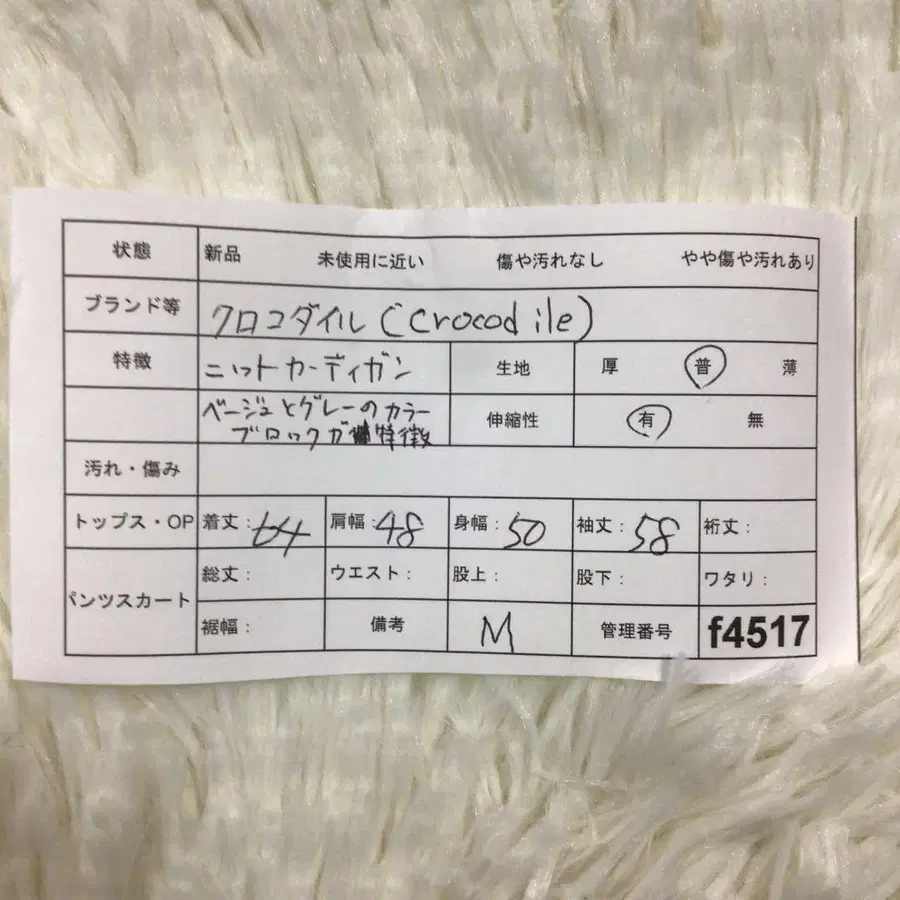 状態 新品 未使用に近い 傷や汚れなし やや傷や汚れあり
ブランド等 クロコダイル (crocodile)
特徴 ニットカーディガン 生地 厚 普 薄
ベージュとグレーのカラー
ブロックが特徴 伸縮性 有 無
汚れ・傷み
トップス・OP 着丈: 64 肩幅: 48 身幅: 50 袖丈: 58 裄丈:
パンツスカート 総丈: ウエスト: 股上: 股下: ワタリ:
裾幅: 備考 M 管理番号 f4517